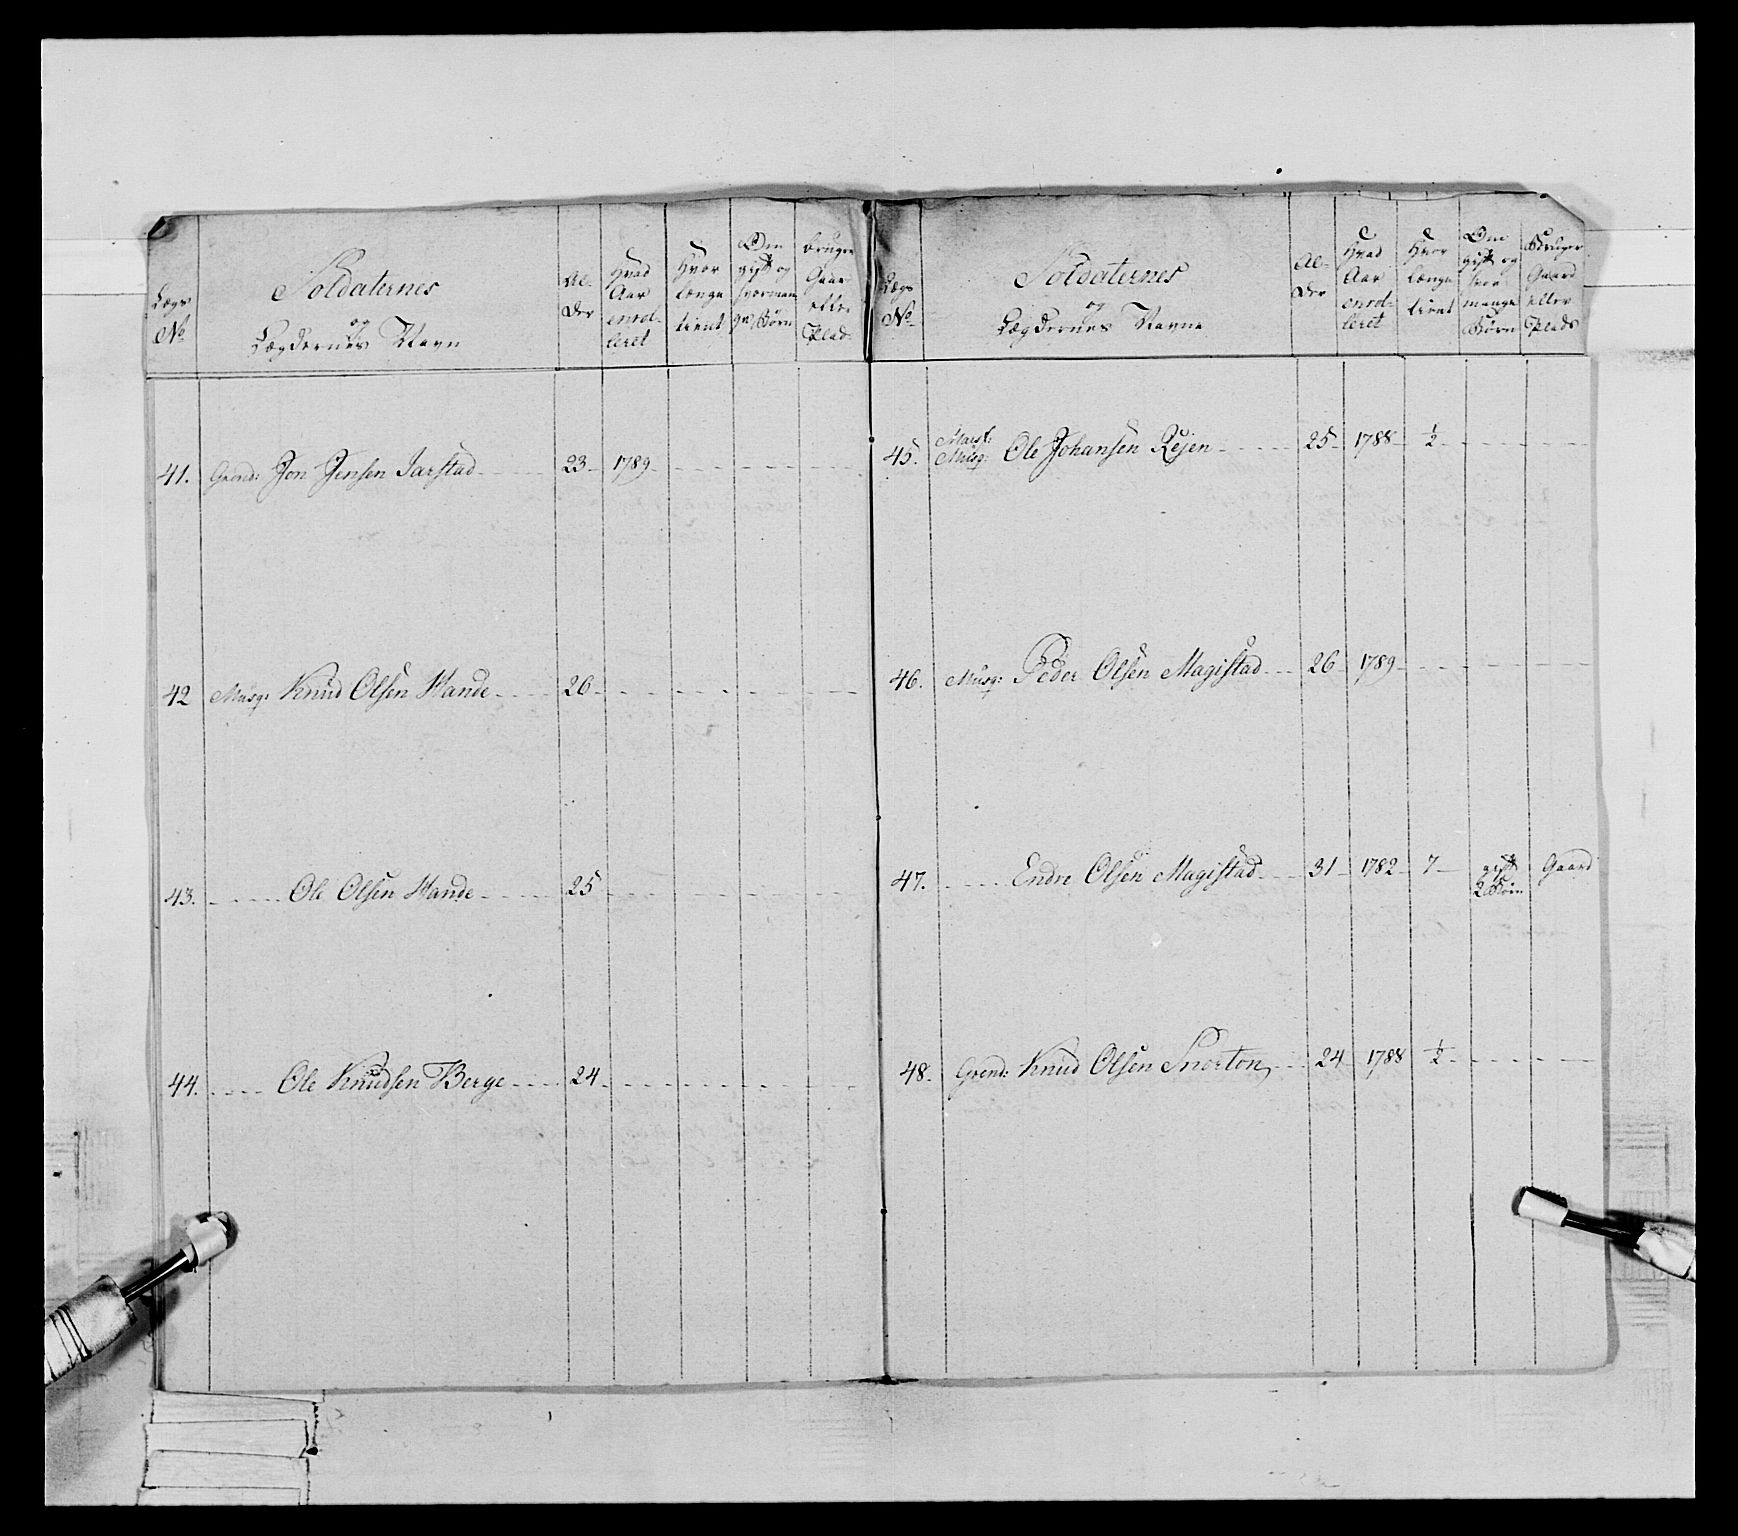 Lægs No
Soldaternes og Lægdernes Navn
Al-der
Hvad Aar enrol-leret
Hvor længe tient
Om gift og hvorman-ge Børn
bruger Gaar eller Plads
41. Grend: Jon Jensen Jarstad 23 1789
42 Musq: Knud Olsen Hande 26
43. Ole Olsen Hande 25
44. Ole Knudsen Berge 24
Lægs No
Soldaternes og Lægdernes Navne
Al-der
Hvad Aar enrol-leret
Hvor længe tient
Om gift og hvor mange Børn
Bruger Gaard eller Plads
45. Musq: Ole Johansen Rejen 25 1788 ½
46. Musq: Peder Olsen Magistad 26 1789
47. Endre Olsen Magistad 31 1782 7 gift 2 Børn Gaard
48. Grend: Knud Olsen Snorton 24 1788 ½